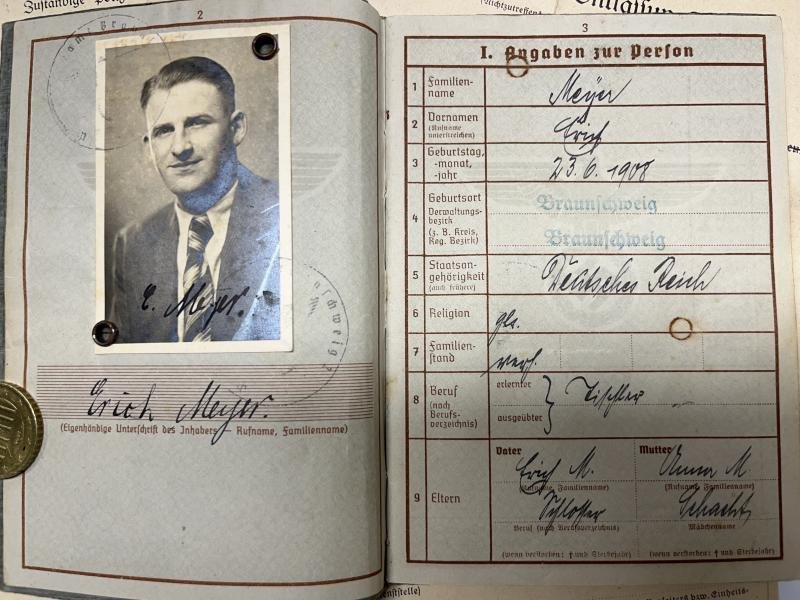 Zuständige
(Nichtzutreffen
2
E. Meyer.
Erich Meyer.
(Eigenhändige Unterschrift des Inhabers — Rufname, Familienname)
3
I. Angaben zur Person
1 Familien-
name
Meyer
2 Vornamen
(Rufname
unterstreichen)
Erich
3 Geburtstag,
-monat,
-jahr
23.6.1908
4 Geburtsort
Verwaltungs-
bezirk
(z. B. Kreis,
Reg. Bezirk)
Braunschweig
Braunschweig
5 Staatsan-
gehörigkeit
(auch frühere)
Deutsches Reich
6 Religion
7 Familien-
stand
verh.
8 Beruf
(nach
Berufs-
verzeichnis)
erlernter
ausgeübter
Tischler
9 Eltern
Vater
Erich M.
(Rufname, Familienname)
Schlosser
Beruf (nach Berufsverzeichnis)
(wenn verstorben: † und Sterbejahr)
Mutter
Anna M.
(Rufname, Familienname)
Schacht
Mädchenname
(wenn verstorben: † und Sterbejahr)